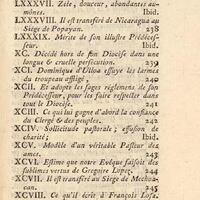 LXXXVII. Zèle, douceur, abondantes au-
mônes. Ibid.
LXXXVIII. Il est transféré de Nicaragua au
Siege de Popayan. 238
LXXXIX. Mérite de son illustre Prédéces-
seur. Ibid.
XC. Décédé hors de son Diocèse dans une
longue & cruelle persécution. 239
XCI. Dominique d'Ulloa essuye les larmes
du troupeau affligé ; 240
XCII. Et adopte les sages réglemens de son
Prédécesseur, pour les faire respecter dans
tout le Diocèse. 241
XCIII. Ce qui lui gagne d'abord la confiance
du Clergé & des peuples. 242
XCIV. Sollicitude pastorale ; effusion de
charité ; Ibid.
XCV. Modèle d'un véritable Pasteur des
ames. 243
XCVI. Estime que notre Evêque faisoit des
sublimes vertus de Gregoire Lopez. 244
XCVII. Il est transféré au Siege de Mechoa-
can. 245
XCVIII. Ce qu'il écrit à François Losa.